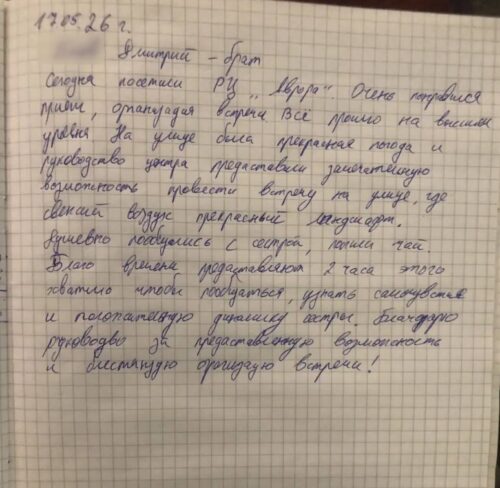 17.05.26 г.
Дмитрий - брат
Сегодня посетили РЦ „Аврора". Очень понравился
прием, организация встречи Всё прошло на высшем
уровне На улице была прекрасная погода и
руководство центра предоставили замечательную
возможность провести встречу на улице, где
свежий воздух прекрасный ландшафт.
Душевно пообщались с сестрой, попили чай.
Благо времени предоставляют 2 часа этого
хватило чтобы пообщаться, узнать самочувствие
и положительную динамику сестры. Благодарю
руководство за предоставленную возможность
и блестящую организацию встречи!